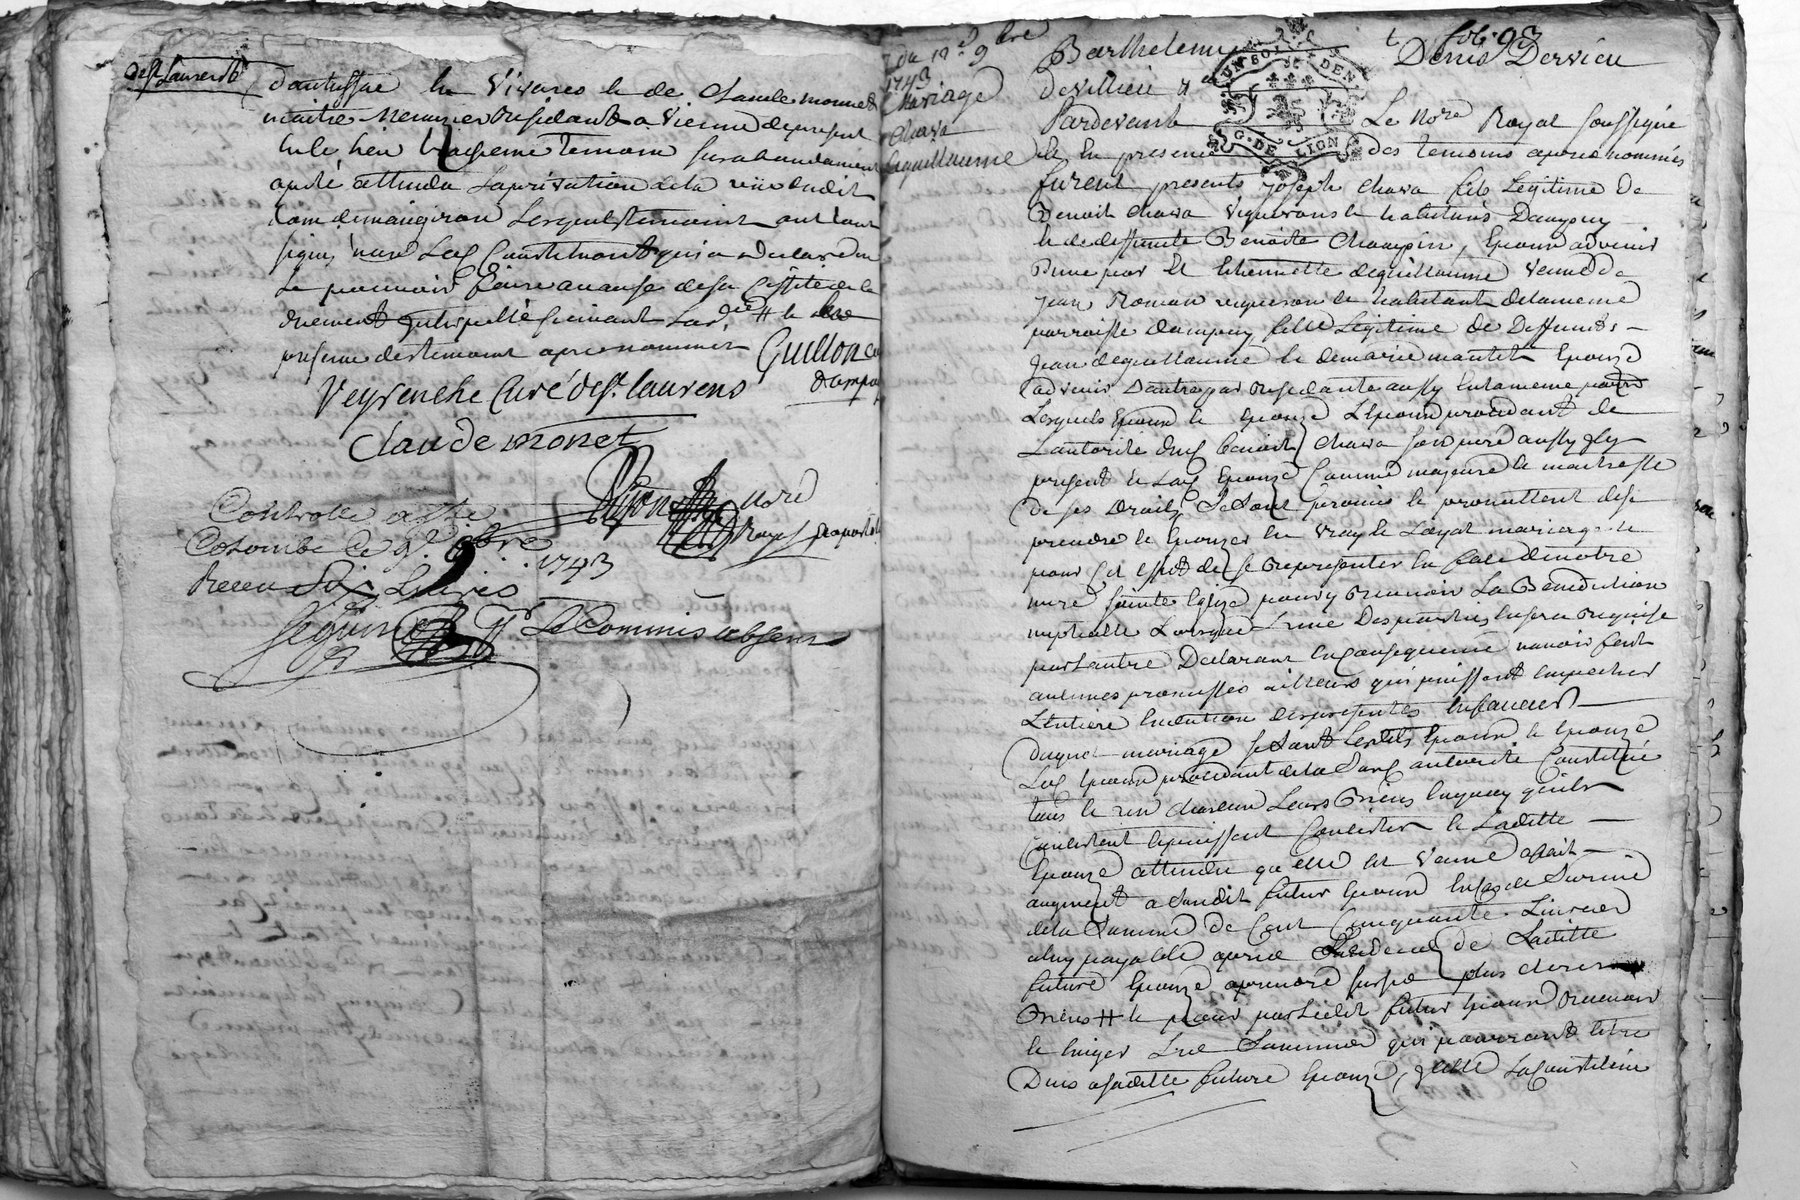 de St Laurens
en Vivares et de Claude monnet
maitre Menuzier residant a Vienne de present
en ce lieu troisieme temoin surabondament
apellé attendu la privation de la vüe dudit
lesquels temoins ont tous
signé non led Constituant qui a declaré ne
le pouvoir faire a cause de sa Cessité de ce
duement interpellé suivant Lord.ce et le
presence des temoins apres nommes Guillon
Veyrenche Curé de St. laurens dampuy
Claude monet
nore
Royal
Controllé a Ste
Colombe Le 9bre
1743
Receu Six Livres
Seguin pr Le Commis absent
du 12e 9bre
1743
Mariage
Chava
Deguillaume
fol. 93
Barthelemy Denis Dervieu
devilliers
UN SOL DEN
G. DE LION
Pardevant Le Nore Royal soussigné
et en presence des temoins apres nommés
furent presents Joseph Chava fils Legitime de
Benoit Chava vigneron et habitant Dampuy
et de deffunte Benoite Champin, Epoux advenir
Dune part Et Ethiennette deguillaume veuve de
Jean Roman vigneron et habitant de la meme
parroisse dampuy fille Legitime de Deffunts
Jean deguillaume et de marie mantet Epouze
advenir Dautre part residante aussy en la meme parr.
Lesquels Epoux et Epouze L'Epoux procedant de
L'autorité dud benoit Chava son pere aussy icy
present et Lad Epouze Comme majeure et maitresse
de ses Droits Se sont promis et promettent de se
prendre et Epouzer en vray et Loyal mariage et
pour cet effet de se representer en face de notre
mere sainte Eglize pour y recevoir La Benediction
nuptialle Lorsque L'une Des parties en sera requise
par L'autre Declarant en consequence n'avoir fait
aucunes promesses ailleurs qui puissent empecher
L'entiere execution des presentes En faveur
Duquel mariage se sont lesdits Epoux et Epouze
Led Epoux procedant de la Susd authorité Constitué
tous et un chacun Leurs Biens en quoy qu'ils
Consistent et puissent Consister et Laditte
Epouze attendu qu'elle est veuve a fait
augment a Sondit futur Epoux En cas de Survie
de la Somme de Cent Cinquante Livres
a luy payable apres Le deces de Laditte
future Epouze a prendre sur ses plus clairs
Biens et pour par Ledit futur Epoux recevoir
et exiger Les Sommes qui pourront etre
Dues a saditte future Epouze, Elle La constitué